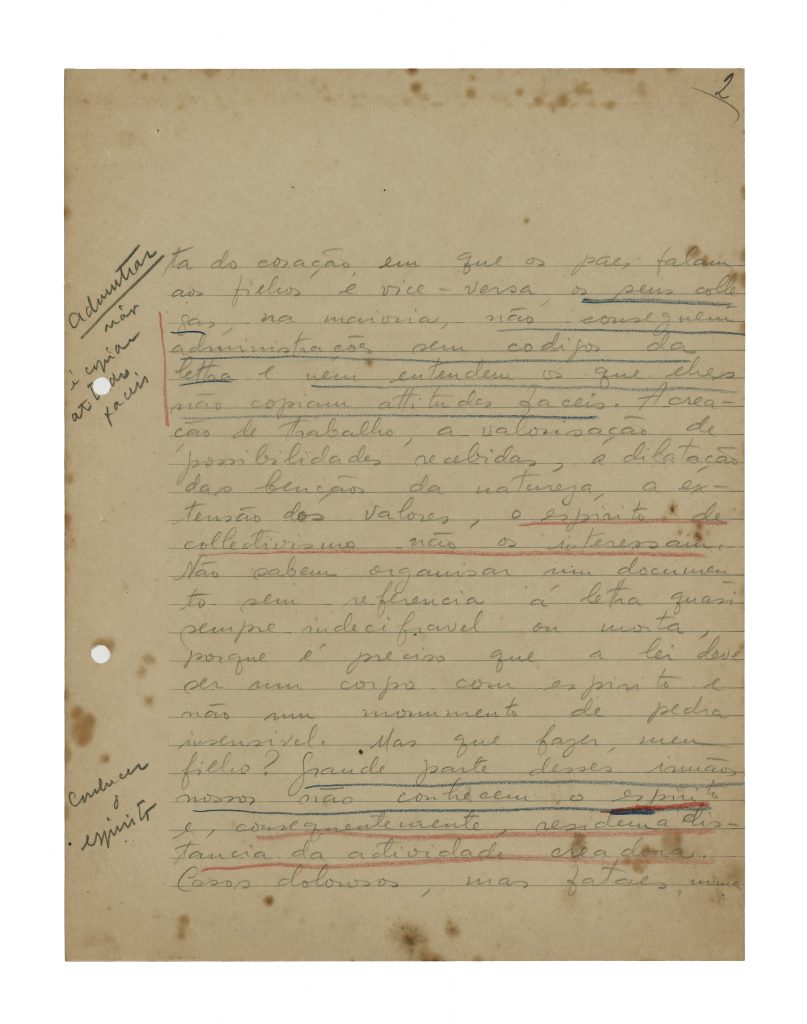 2
ta do coração, em que os paes falam
aos filhos e vice-versa, os seus colle
gas, na maioria, não conseguem
administrações sem codigos da
lettra e nem entendem os que elles
não copiam attitudes faceis. A crea-
ção de trabalho, a valorisação de
possibilidades recebidas, a dilatação
das bençãos da natureza, a ex-
tensão dos valores, o espirito de
collectivismo não os interessam.
Não sabem organisar um documen
to sem referencia á letra quasi
sempre indecifravel ou morta,
porque é preciso que a lei deve
ser um corpo com espirito e
não um monumento de pedra
insensivel. Mas que fazer, meu
filho? Grande parte desses irmãos
nossos não conhecem o espirito
e, consequentemente, residem a dis-
tancia da actividade creadora.
Casos dolorosos, mas fataes, numa
Admnistrar
não
é copiar
atitudes
faceis
Conhecer
o
espirito